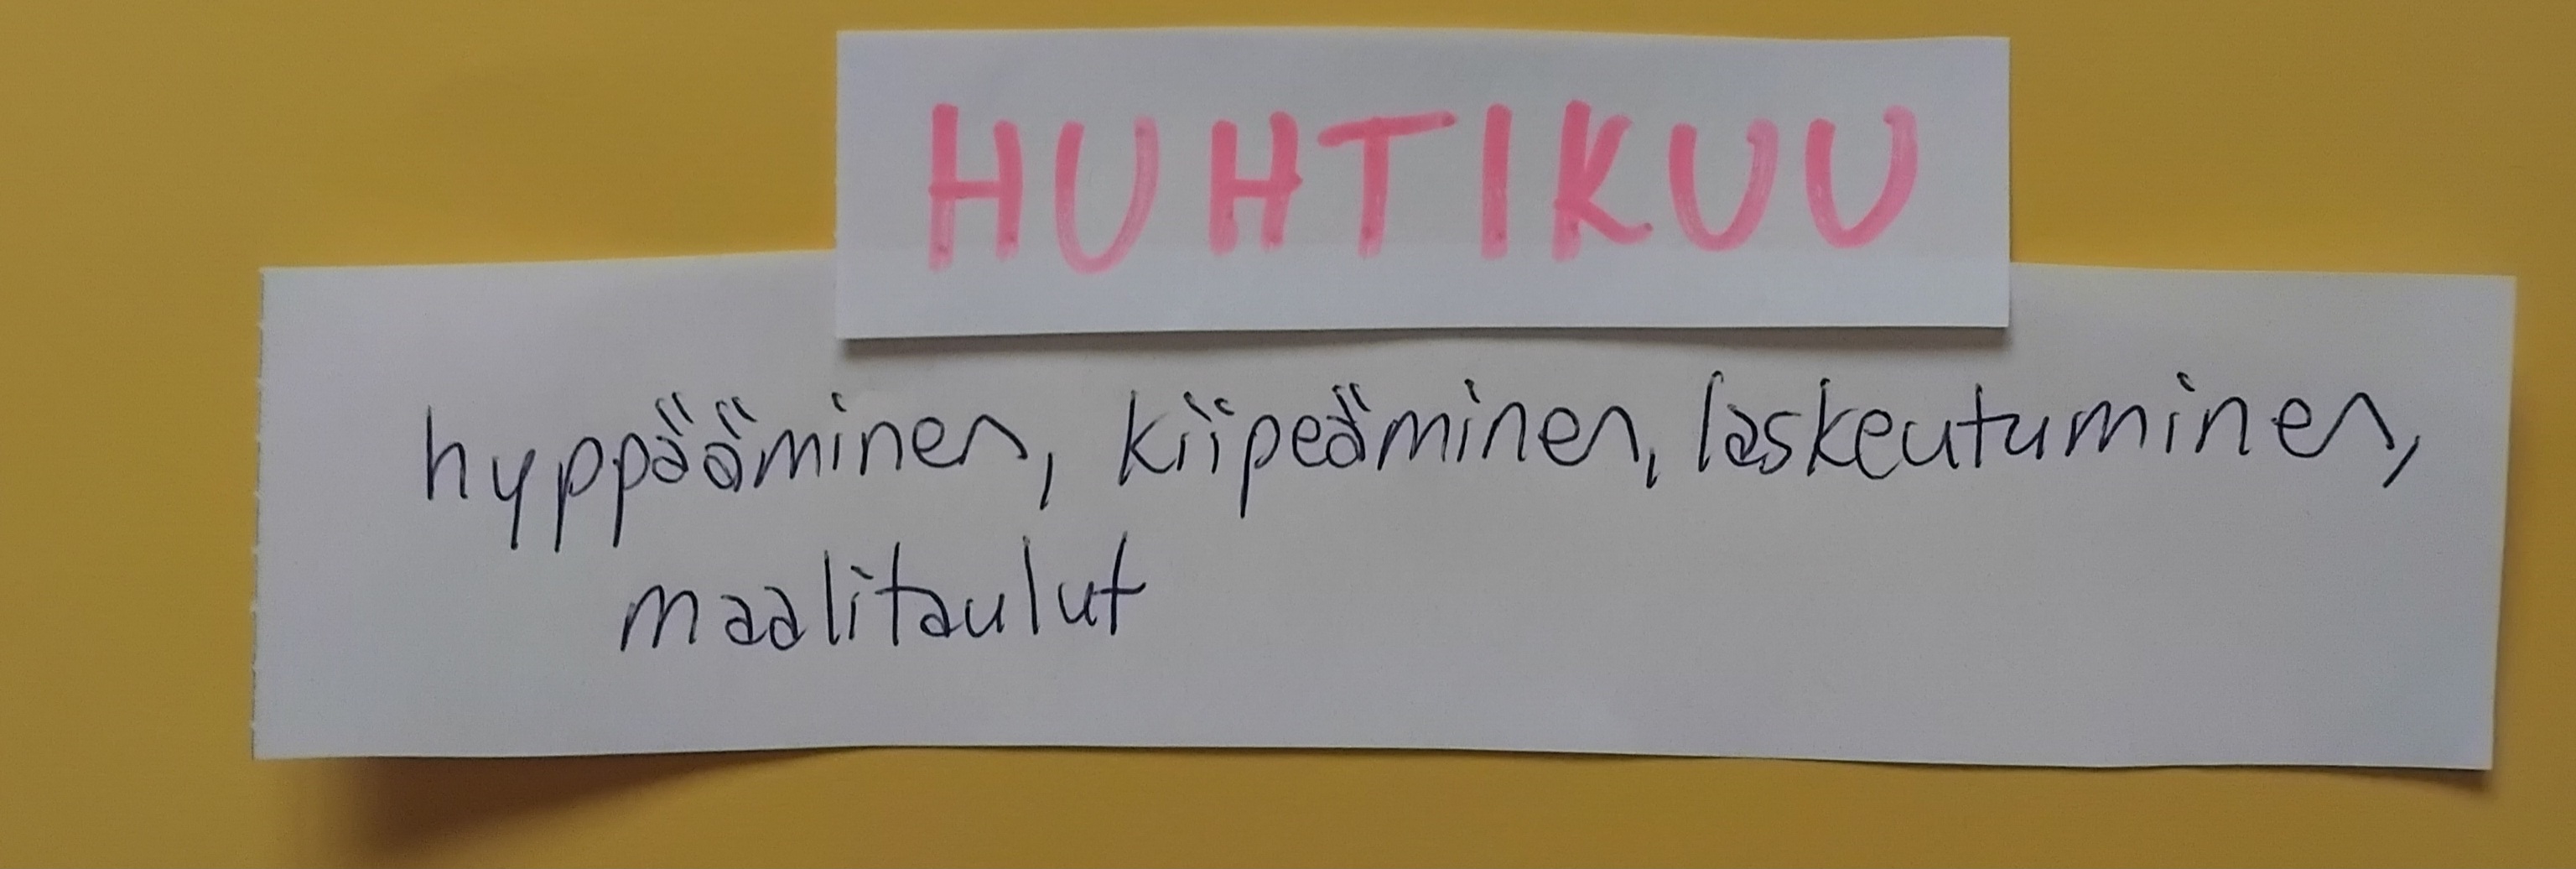 HUHTIKUU
hyppääminen, kiipeäminen, laskeutuminen,
maalitaulut